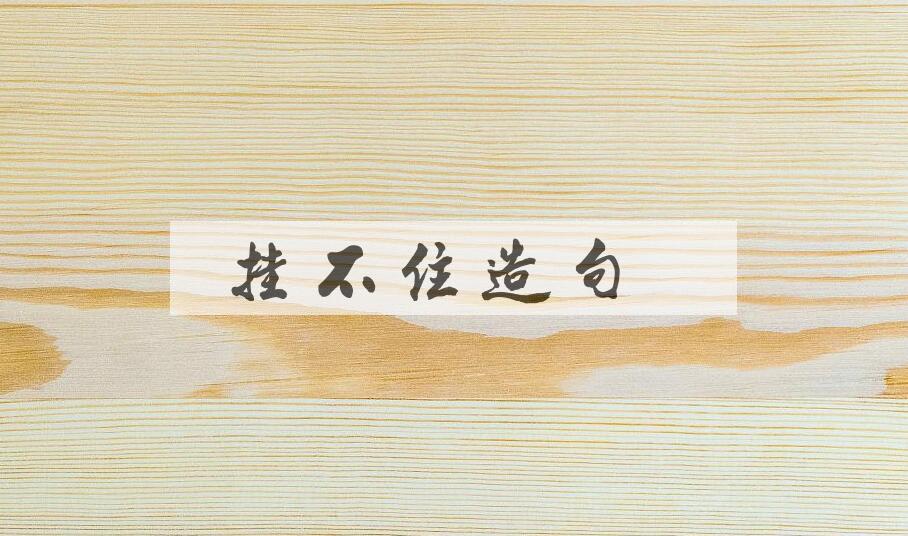 挂不住造句